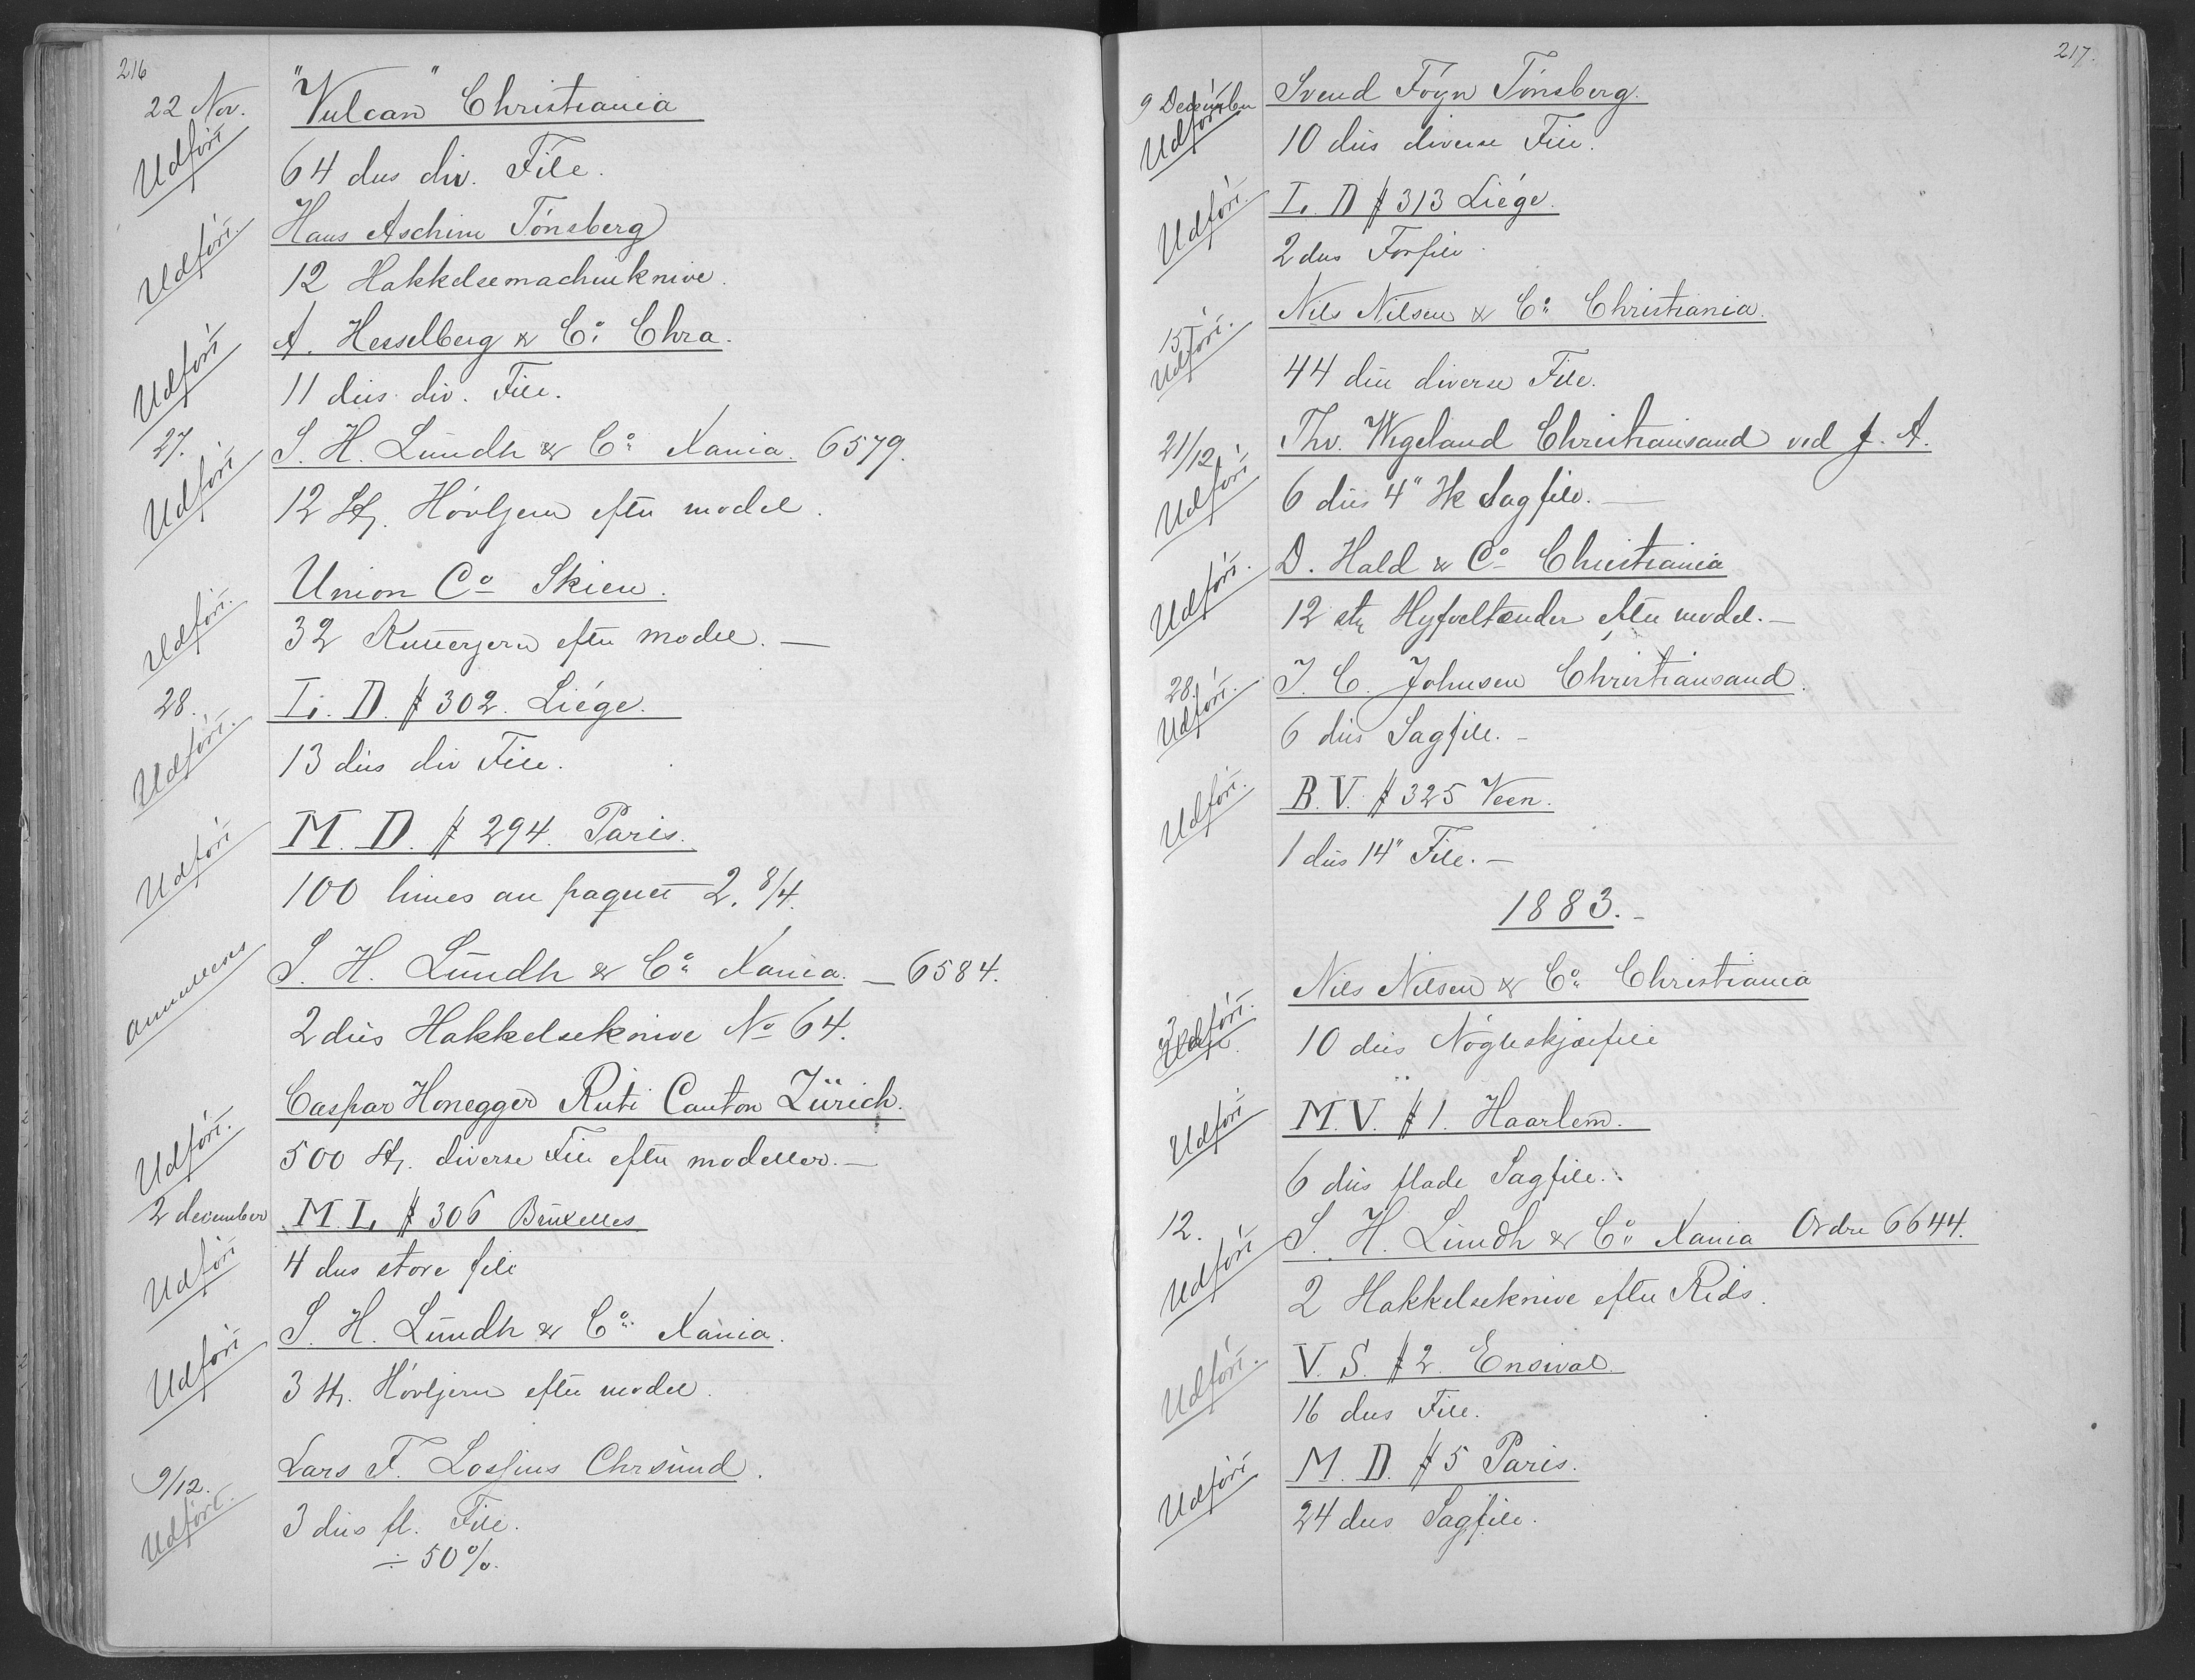 216
22 Nov.
"Vulcan" Christiania
Udført
64 dus div. File.
Hans Aschim Tønsberg
Udført.
12 Hakkelsemachinknive.
A. Hesselberg & Co. Chra.
Udført
11 dus. div. File.
27.
S. H. Lundh & Co Xania. 6579.
Udført
12 St. Høvljern efter model.
Union Co Skien.
Udført.
32 Kutterjern efter model. —
28.
L. D. # 302. Liége.
Udført.
13 dus div File.
M. D. # 294. Paris.
Udført
100 limes au paquet 2. 8/4.
S. H. Lundh & Co Xania. — 6584.
annulleres
2 dus Hakkelseknive No 64.
Caspar Honegger Rüti Canton Zürich.
Udført.
500 St. diverse File efter modeller. —
2 december
M. L. # 306 Bruxelles
Udført
4 dus store file
S. H. Lundh & Co. Xania.
Udført
3 St. Høvljern efter model.
9/12.
Lars F. Lossius Chrsund.
Udført.
3 dus fl. File.
÷ 50%.
217.
9 December
Svend Foyn Tønsberg.
Udført
10 dus diverse File.
L. D # 313 Liége.
Udført.
2 dus Forfile.
Nils Nilsen & Co. Christiania.
15
Udført.
44 dus diverse File.
21/12
Thv. Wigeland Christiansand ved J. A.
Udført
6 dus 4" Sagfile. —
D. Hald & Co Christiania
Udført.
12 st efter model. —
28.
J. C. Johnsen Christiansand.
Udført.
6 dus Sagfile. —
B. V. # 325 Veen.
Udført.
1 dus 14" File. —
1883. —
Nils Nilsen & Co. Christiania
Udført.
10 dus Nøgleskjærfile
M. V. # 1. Haarlem.
Udført
6 dus flade Sagfile.
12.
S. H. Lundh & Co. Xania Ordre 6644.
Udført
2 Hakkelseknive efter Rids.
V. S. # 2. Ensival.
Udført.
16 dus File.
M. D. # 5 Paris.
Udført
24 dus Sagfile.